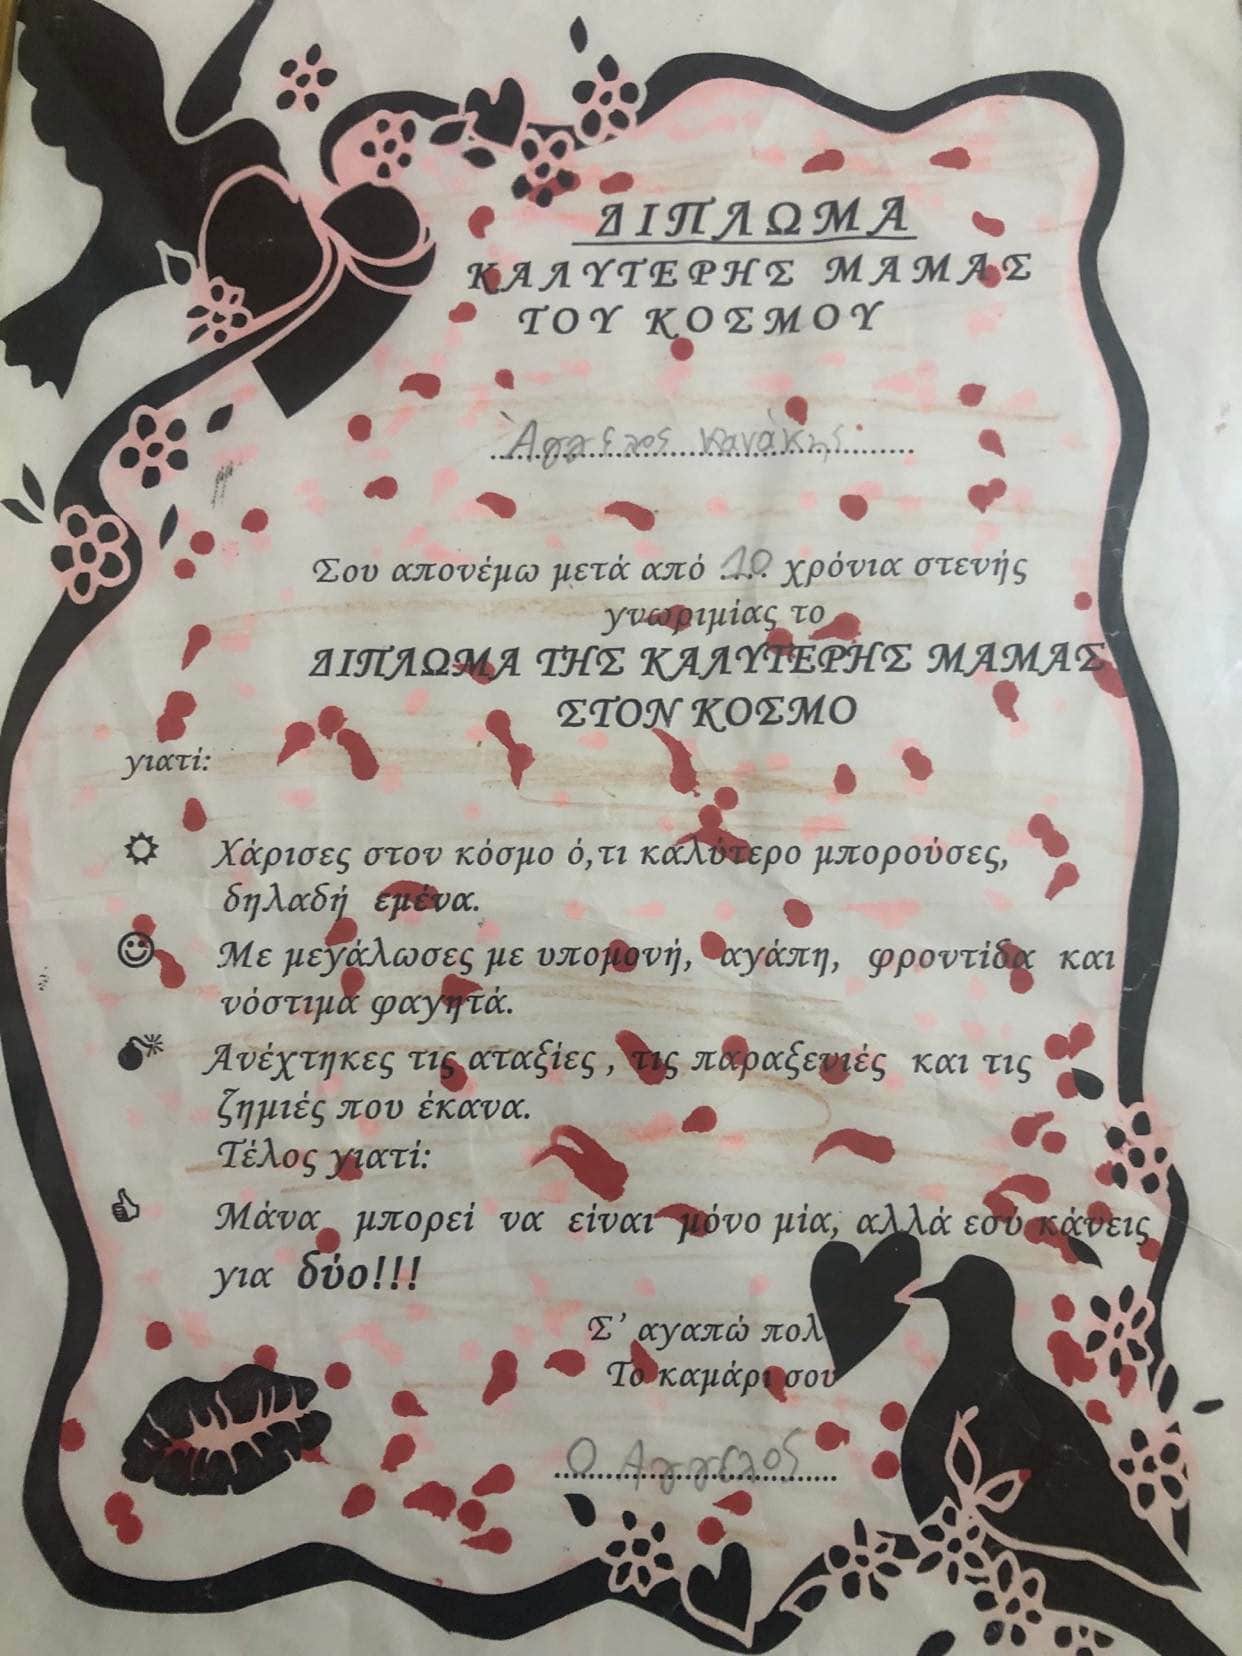 ΔΙΠΛΩΜΑ
ΚΑΛΥΤΕΡΗΣ ΜΑΜΑΣ
ΤΟΥ ΚΟΣΜΟΥ
Άγγελος Κανάκης
Σου απονέμω μετά από 10 χρόνια στενής
γνωριμίας το
ΔΙΠΛΩΜΑ ΤΗΣ ΚΑΛΥΤΕΡΗΣ ΜΑΜΑΣ
ΣΤΟΝ ΚΟΣΜΟ
γιατί:
Χάρισες στον κόσμο ό,τι καλύτερο μπορούσες,
δηλαδή εμένα.
Με μεγάλωσες με υπομονή, αγάπη, φροντίδα και
νόστιμα φαγητά.
Ανέχτηκες τις αταξίες , τις παραξενιές και τις
ζημιές που έκανα.
Τέλος γιατί:
Μάνα μπορεί να είναι μόνο μία, αλλά εσύ κάνεις
για δύο!!!
Σ' αγαπώ πολ
Το καμάρι σου
Ο Αγγελος